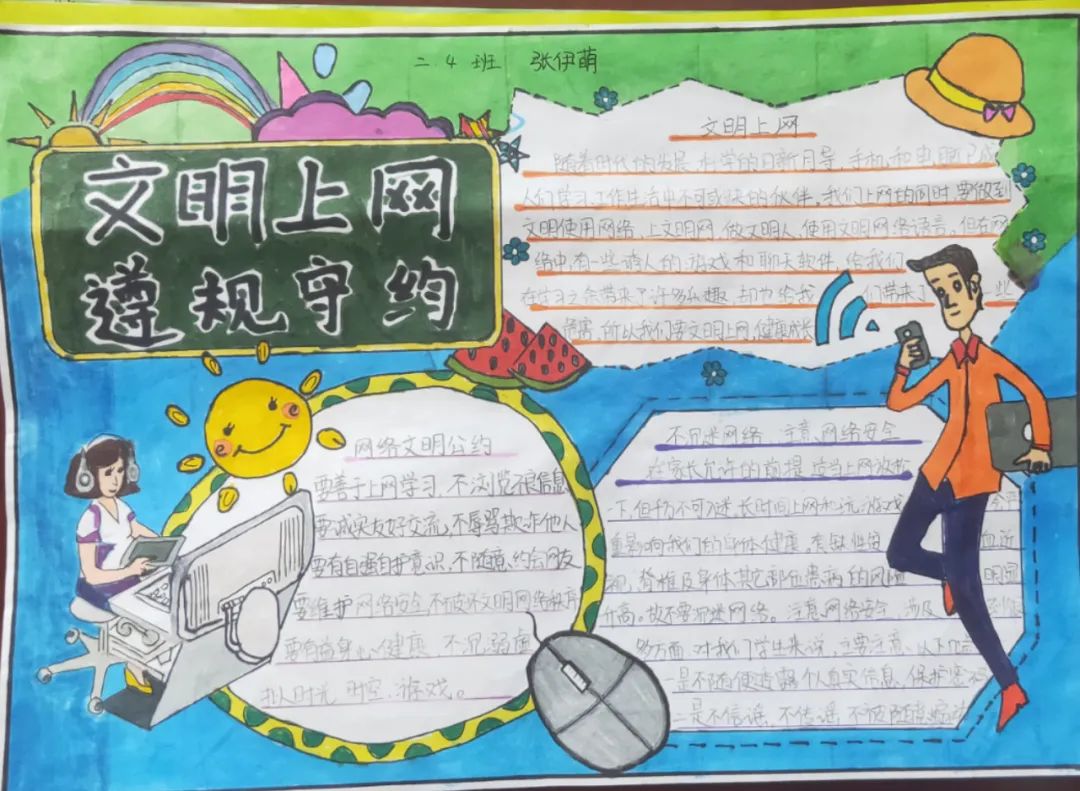 二.4 班 张伊萌
文明上网
遵规守约
文明上网
随着时代的发展,科学的日新月异,手机和电脑已成
人们学习工作生活中不可或缺的伙伴,我们上网的同时,要做到
文明使用网络,上文明网,做文明人,使用文明网络语言,但在网
络中有一些诱人的游戏和聊天软件,给我们
在学习之余带来了许多乐趣,却也给我们带来了一些
危害,所以我们要文明上网,健康成长
网络文明公约
要善于上网学习,不浏览不良信息
要诚实友好交流,不辱骂欺诈他人
要有自强自护意识,不随意约会网友
要维护网络安全,不破坏文明网络秩序
要有益身心健康,不沉溺虚
拟时光,时空,游戏。
不沉迷网络 注意网络安全
在家长允许的前提,适当上网放松
一下,但千万不可沉迷,长时间上网和玩游戏
重影响我们的身体健康,
脊椎及身体其它部位患病的风险 明显
升高。故不要沉迷网络。注意网络安全,涉及
多方面,对我们学生来说,主要注意以下几
一是不随便透露个人真实信息,保护
二是不信谣,不传谣,不被随意煽动